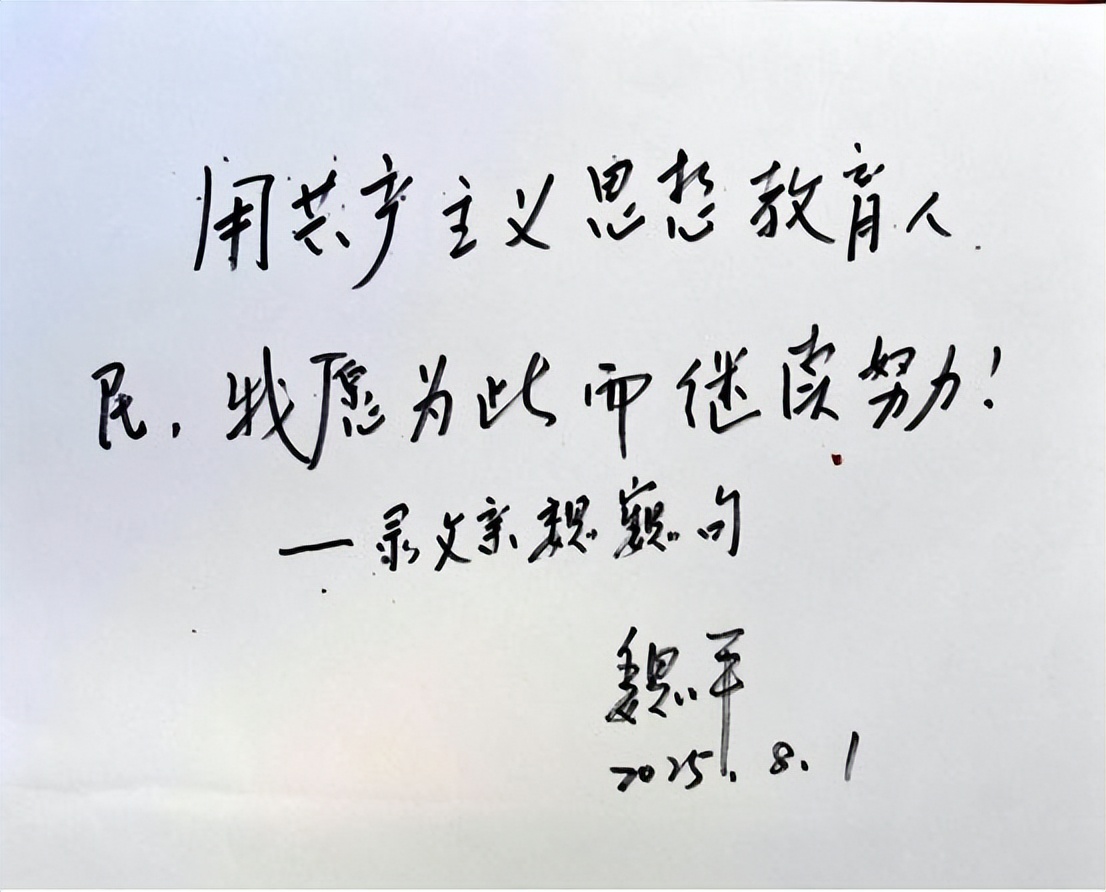 用共产主义思想教育人
民，我愿为此而继续努力！
—录父亲魏巍句
魏平
2025.8.1